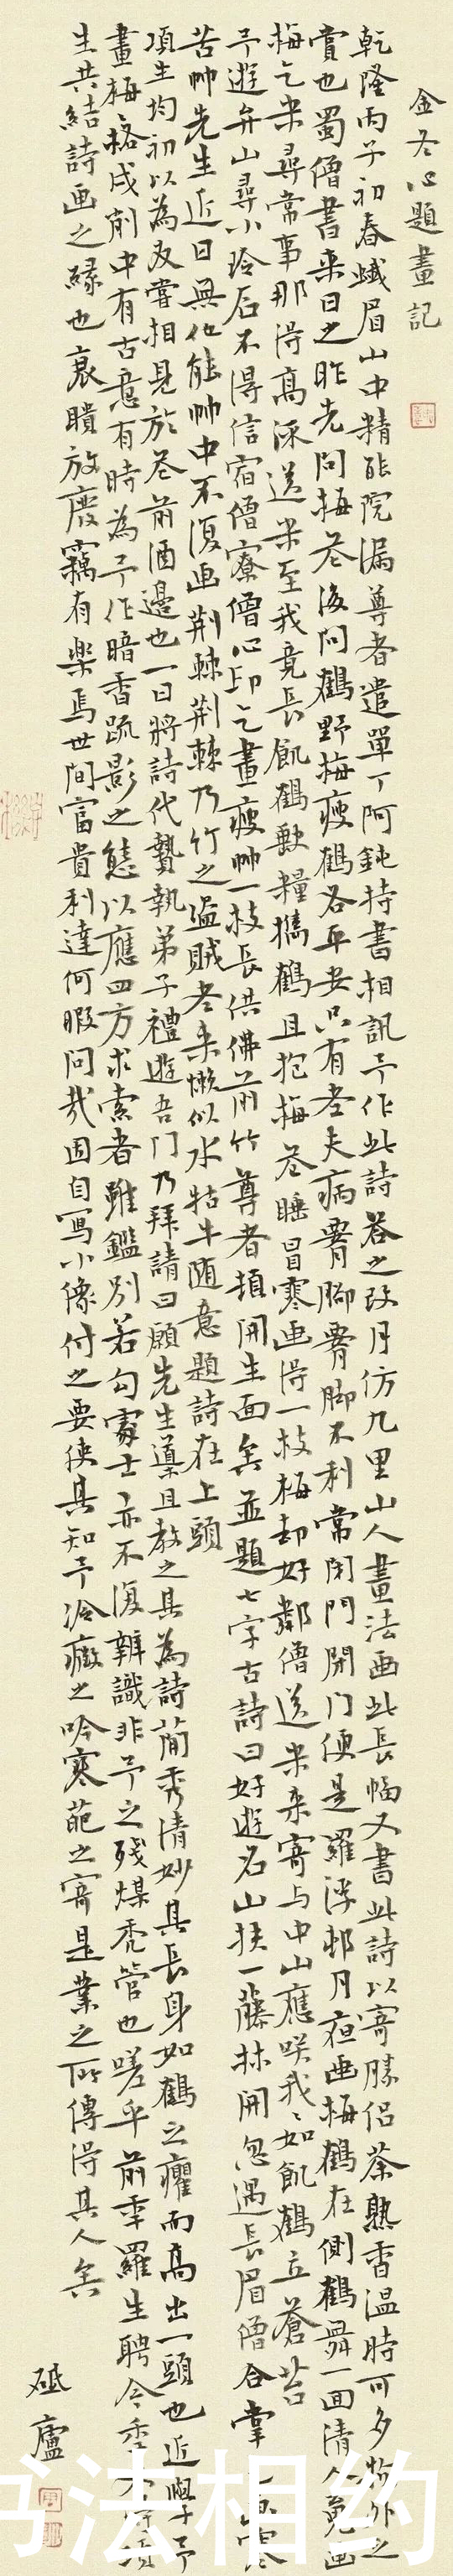 金冬心題畫記
乾隆丙子初春峨眉山中精能院漏尊者遣單丁阿鈍持書相訊予作此詩答之改月仿九里山人畫法画此長幅又書此詩以寄勝侶茶熟香温時可多物外之
賞也蜀僧書来日之昨先問梅花後問鶴野梅瘦鶴各平安只有老夫病腰脚腰脚不利常閉門閉门便是羅浮邨月夜画梅鶴在側鶴舞一回清人魂画
梅乞米尋常事那得高流送米至我竟長飢鶴缺糧攜鶴且抱梅花睡冒寒画得一枝梅却好鄰僧送米来寄与中山應咲我我如飢鶴立蒼苔
予遊弁山尋小玲后不得信宿僧寮僧心印乞畫瘦竹一枝長供佛前竹尊者頓開生面矣並題七字古詩曰好遊名山扶一藤林開忽遇長眉僧合掌
苦竹先生近日無他能竹中不復画荆棘荆棘乃竹之盗賊老来懶似水牯牛随意題詩在上頭
項生均初以為友嘗相見於花前酒邊也一日將詩代贄執弟子禮遊吾门乃拜請曰願先生導且教之其為詩簡秀清妙其長身如鶴之癯而高出一頭也近學予
畫梅梅格戌削中有古意有時為予作暗香疏影之態以應四方求索者雖鑑别若勾處士亦不復辨識非予之残煤禿管也嗟乎前年羅生聘今年
生共結詩画之緣也衰聵放廢竊有樂焉世間富貴利達何暇問哉因自寫小像付之要使其知予冷癡之吟寒葩之寄是業之所傳得其人矣
砥廬
书法相约